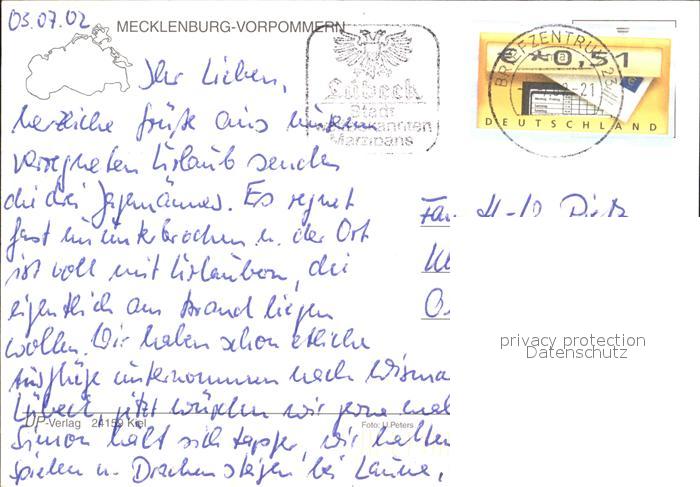 03.07.02
MECKLENBURG-VORPOMMERN
Ihr Lieben,
herzliche Grüße aus unserem
verregneten Urlaub senden
die drei Jagemänner. Es regnet
fast ununterbrochen u. der Ort
ist voll mit Urlaubern, die
eigentlich am Strand liegen
wollen. Wir haben schon etliche
Ausflüge unternommen nach Wisma
Lübeck, jetzt würden wir gerne mal
Simon hält sich tapfer, wir halten
spielen u. Drachen steigen bei Laune,
ÜP-Verlag 24159 Kiel
Foto: U.Peters
Lübeck
Stadt
des bekannten
Marzipans
BRIEFZENTRUM 23
-21
€ 0,51
DEUTSCHLAND
Fam. H-D
privacy protection
Datenschutz